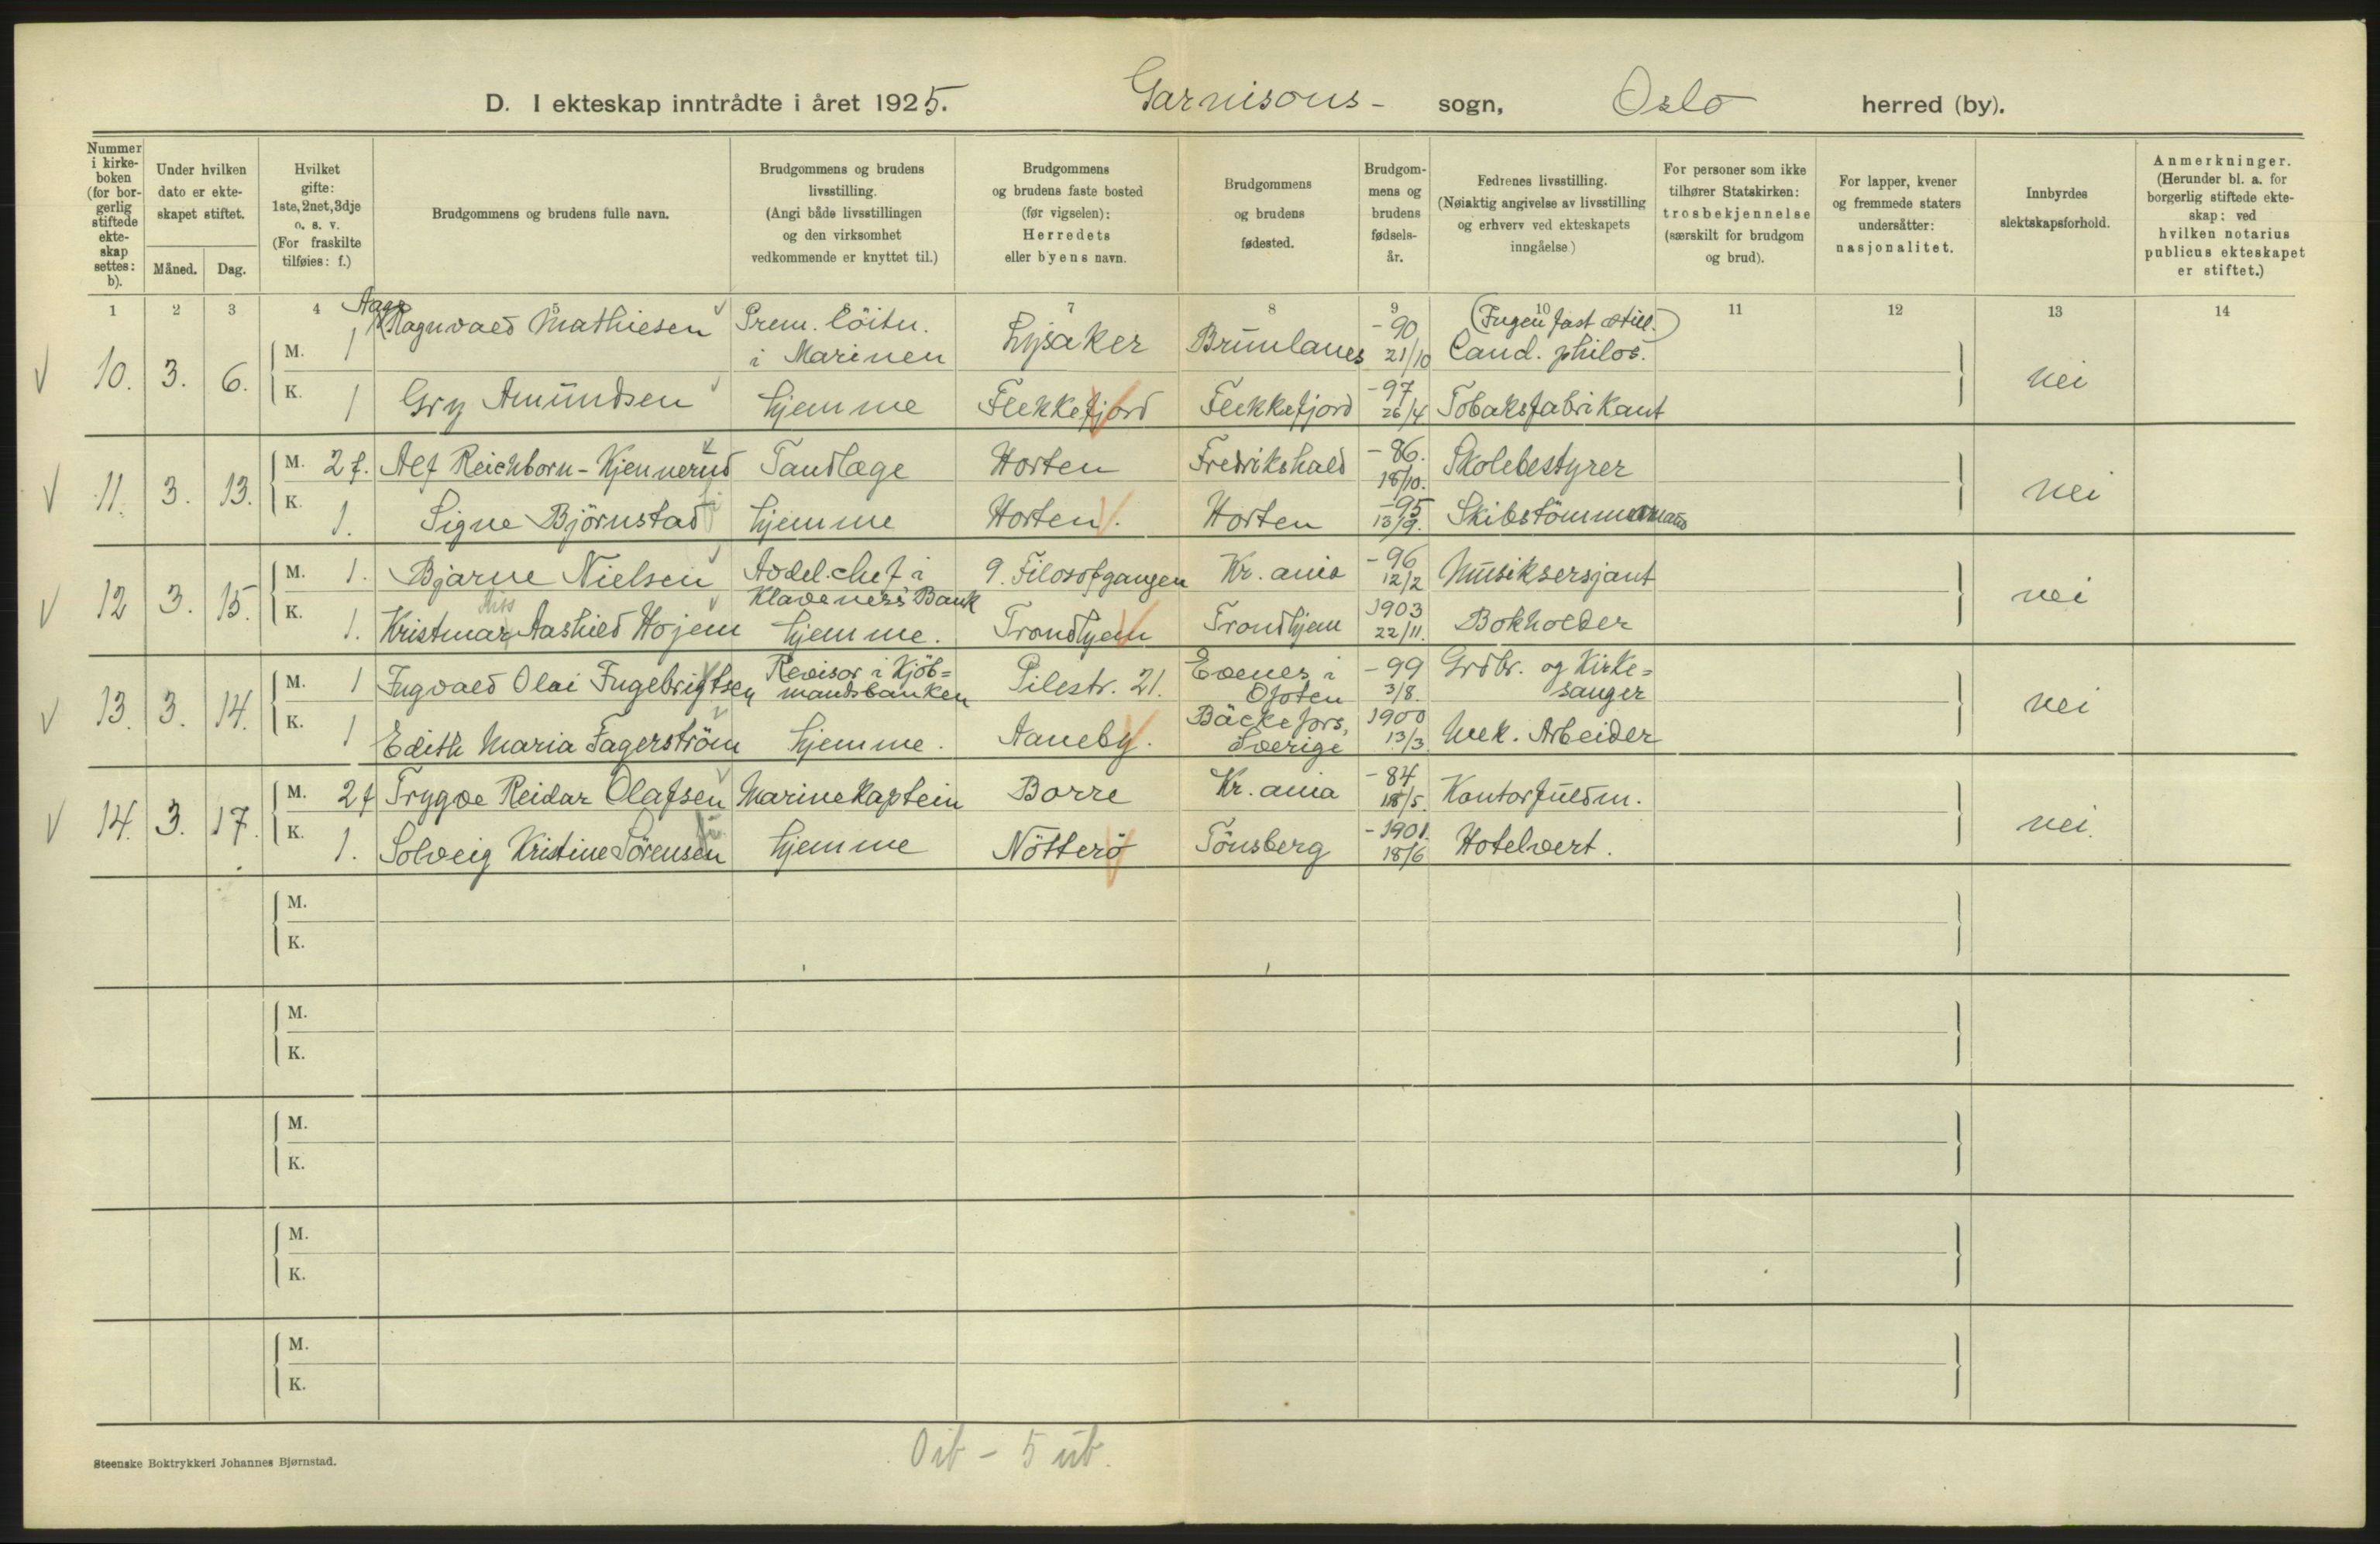 D. I ekteskap inntrådte i året 1925. Garnisons- sogn, Oslo herred (by).
Nummer i kirkeboken (for borgerlig stiftede ekteskap settes: b).
Under hvilken dato er ekteskapet stiftet.
Måned. Dag.
Hvilket gifte: 1ste, 2net, 3dje o. s. v. (For fraskilte tilføies: f.)
Brudgommens og brudens fulle navn.
Brudgommens og brudens livsstilling. (Angi både livsstillingen og den virksomhet vedkommende er knyttet til.)
Brudgommens og brudens faste bosted (før vigselen): Herredets eller byens navn.
Brudgommens og brudens fødested.
Brudgommens og brudens fødselsår.
Fedrenes livsstilling. (Nøiaktig angivelse av livsstilling og erhverv ved ekteskapets inngåelse)
For personer som ikke tilhører Statskirken: trosbekjennelse (særskilt for brudgom og brud).
For lapper, kvener og fremmede staters undersåtter: nasjonalitet.
Innbyrdes slektskapsforhold.
Anmerkninger. (Herunder bl. a. for borgerlig stiftede ekteskap: ved hvilken notarius publicus ekteskapet er stiftet.)
1 2 3 4 5 7 8 9 10 11 12 13 14
10. 3. 6. M. 1 Aage Ragnvald Mathiesen Prem. löitn. i Marinen Lysaker Brunlanes -90 21/10 (Ingen fast still.) Cand. philos. nei
K. 1 Gry Amundsen hjemme Flekkefjord Flekkefjord -97 26/4 Tobaksfabrikant
11. 3. 13. M. 2 f. Alf Reichborn-Kjennerud Tandlæge Horten Fredrikshald -86. 18/10. Skolebestyrer nei
K. 1. Signe Björnstad hjemme Horten. Horten -95 13/9. Skibstömmermand
12 3. 15. M. 1. Bjarne Nielsen Avdel.chef i Klaveness Bank 9. Filosofgangen Kr.ania -96 12/2 Musiksersjant nei
K. 1. Kristmar Aashild Hojem hjemme. Trondhjem Trondhjem 1903 22/11. Bokholder
13. 3. 14. M. 1 Ingvald Olai Ingebrigtsen Revisor i Kjöb=mandsbanken Pilestr. 21. Evenes i Ofoten -99 3/8. Grdbr. og Kirke=sanger nei
K. 1 Edith Maria Fagerström hjemme. Aaneby. Bäckefors, Sverige 1900 13/3 Mek. Arbeider
14. 3. 17. M. 2 f Trygve Reidar Olafsen Marinekaptein Borre Kr.ania -84 18/5. Kontorfuldm. nei.
K. 1. Solveig Kristine Sörensen hjemme Nötterö Tönsberg -1901. 18/6 Hotelvert.
M.
K.
M.
K.
M.
K.
M.
K.
M.
K.
Steenske Boktrykkeri Johannes Bjørnstad.
0 ib - 5 ub.